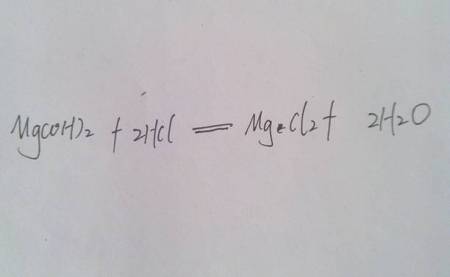 Mg(OH)2 + 2HCl = MgCl2 + 2H2O